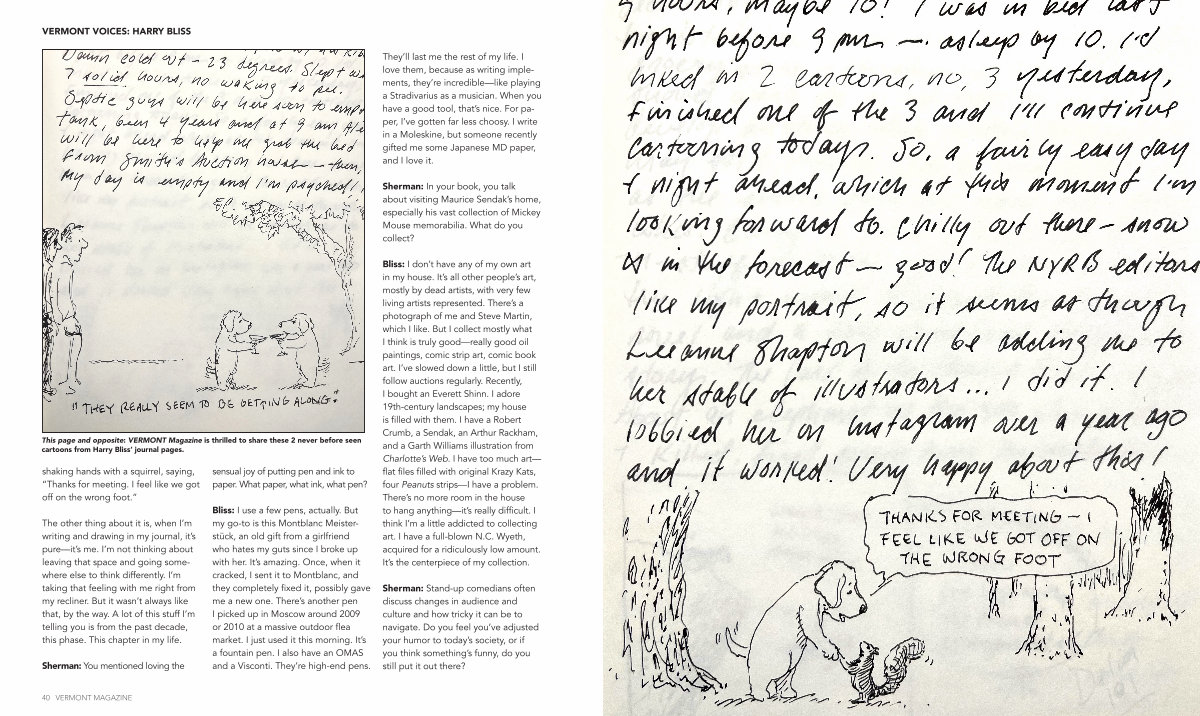 VERMONT VOICES: HARRY BLISS
Damn cold out – 23 degrees. Slept
7 solid hours, no waking to pee.
Septic guys will be here soon to empt
tank, been 4 years and at 9 am
will be here to help me grab the bed
from Smith's Auction house – then,
my day is empty and I'm psyched!
"THEY REALLY SEEM TO BE GETTING ALONG."
This page and opposite: VERMONT Magazine is thrilled to share these 2 never before seen
cartoons from Harry Bliss' journal pages.
shaking hands with a squirrel, saying,
"Thanks for meeting. I feel like we got
off on the wrong foot."
The other thing about it is, when I'm
writing and drawing in my journal, it's
pure—it's me. I'm not thinking about
leaving that space and going some-
where else to think differently. I'm
taking that feeling with me right from
my recliner. But it wasn't always like
that, by the way. A lot of this stuff I'm
telling you is from the past decade,
this phase. This chapter in my life.
Sherman: You mentioned loving the
sensual joy of putting pen and ink to
paper. What paper, what ink, what pen?
Bliss: I use a few pens, actually. But
my go-to is this Montblanc Meister-
stück, an old gift from a girlfriend
who hates my guts since I broke up
with her. It's amazing. Once, when it
cracked, I sent it to Montblanc, and
they completely fixed it, possibly gave
me a new one. There's another pen
I picked up in Moscow around 2009
or 2010 at a massive outdoor flea
market. I just used it this morning. It's
a fountain pen. I also have an OMAS
and a Visconti. They're high-end pens.
They'll last me the rest of my life. I
love them, because as writing imple-
ments, they're incredible—like playing
a Stradivarius as a musician. When you
have a good tool, that's nice. For pa-
per, I've gotten far less choosy. I write
in a Moleskine, but someone recently
gifted me some Japanese MD paper,
and I love it.
Sherman: In your book, you talk
about visiting Maurice Sendak's home,
especially his vast collection of Mickey
Mouse memorabilia. What do you
collect?
Bliss: I don't have any of my own art
in my house. It's all other people's art,
mostly by dead artists, with very few
living artists represented. There's a
photograph of me and Steve Martin,
which I like. But I collect mostly what
I think is truly good—really good oil
paintings, comic strip art, comic book
art. I've slowed down a little, but I still
follow auctions regularly. Recently,
I bought an Everett Shinn. I adore
19th-century landscapes; my house
is filled with them. I have a Robert
Crumb, a Sendak, an Arthur Rackham,
and a Garth Williams illustration from
Charlotte's Web. I have too much art—
flat files filled with original Krazy Kats,
four Peanuts strips—I have a problem.
There's no more room in the house
to hang anything—it's really difficult. I
think I'm a little addicted to collecting
art. I have a full-blown N.C. Wyeth,
acquired for a ridiculously low amount.
It's the centerpiece of my collection.
Sherman: Stand-up comedians often
discuss changes in audience and
culture and how tricky it can be to
navigate. Do you feel you've adjusted
your humor to today's society, or if
you think something's funny, do you
still put it out there?
40 VERMONT MAGAZINE
9 hours, maybe 10! I was in bed last
night before 9 pm – asleep by 10. I'd
inked in 2 cartoons, no, 3 yesterday,
finished one of the 3 and I'll continue
cartooning today. So, a fairly easy day
& night ahead, which at this moment I'm
looking forward to. Chilly out there – snow
is in the forecast – good! The NYRB editors
like my portrait, so it seems as though
Leeanne Shapton will be adding me to
her stable of illustrators... I did it. I
lobbied her on Instagram over a year ago
and it worked! Very happy about this!
THANKS FOR MEETING – I
FEEL LIKE WE GOT OFF ON
THE WRONG FOOT